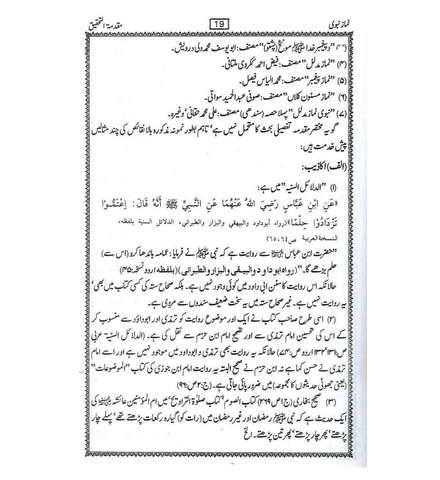 نماز نبوی 19 مقدمۃ التحقیق
(۲) "د پیغمبر خدا ﷺ مونځ (پشتو)" مصنف: ابو یوسف محمد ولی درویش۔
(۳) "نماز مدلل" مصنف: فیض احمد ککروی ملتانی۔
(۴) "نماز پیغمبر" مصنف: محمد الیاس فیصل۔
(۶) "نماز مسنون کلاں" مصنف: صوفی عبد الحمید سواتی۔
(۷) "نبوی نماز مدلل" پہلا حصہ (سندھی) مصنف: علی محمد حقانی، وغیرہ۔
گو یہ مختصر مقدمہ تفصیلی بحث کا متحمل نہیں ہے، تاہم بطور نمونہ مذکورہ بالا نقائص کی چند مثالیں
پیش خدمت ہیں:
(الف) اکاذیب:
(۱) "الدلائل السنیہ" میں ہے:
«عَنِ ابْنِ عَبَّاسٍ رَضِيَ اللهُ عَنْهُمَا عَنِ النَّبِيِّ ﷺ أَنَّهُ قَالَ: اِعْتَمُّوْا
تَزْدَادُوْا حِلْمًا» (رواه ابوداود والبيهقي والبزار والطبراني، الدلائل السنية بلفظه،
النسخة العربية ص ٦٤،٦٥)
"حضرت ابن عباس ؓ سے روایت ہے کہ نبی ﷺ نے فرمایا: عمامہ باندھا کرو (اس سے)
حلم بڑھے گا۔" (رواہ ابو داود والبیہقی والبزار والطبرانی) (بلفظہ اردو نسخہ: ۴۵)
حالانکہ اس روایت کا سنن ابی داود میں کوئی وجود نہیں ہے۔ بلکہ صحاح ستہ کی کسی کتاب میں بھی
یہ روایت نہیں ہے۔ غیر صحاح ستہ میں یہ سخت ضعیف سندوں سے مروی ہے۔
(۲) اسی طرح صاحب کتاب نے ایک اور موضوع روایت کو ترمذی اور ابوداود سے منسوب کر
کے اس کی تحسین امام ترمذی سے اور تصحیح امام ابن حزم سے نقل کی ہے۔ (الدلائل السنیہ عربی
حالانکہ یہ روایت بھی ترمذی و ابوداود میں موجود نہیں ہے اور اسے امام
ترمذی نے حسن کہا ہے نہ ابن حزم نے صحیح البتہ یہ روایت امام ابن جوزی کی کتاب "الموضوعات"
(یعنی جھوٹی حدیثوں کا مجموعہ) میں ضرور پائی جاتی ہے۔ (ج۲ ص۹۶)
(۳) صحیح بخاری (ج۱ ص۲۶۹ کتاب الصوم، کتاب صلوٰۃ التراویح) میں ام المؤمنین عائشہ ؓ کی
ایک حدیث ہے کہ نبی ﷺ رمضان اور غیر رمضان میں (رات کو) گیارہ رکعات پڑھتے تھے، پہلے چار
پڑھتے، پھر چار پڑھتے، پھر تین پڑھتے۔ الخ